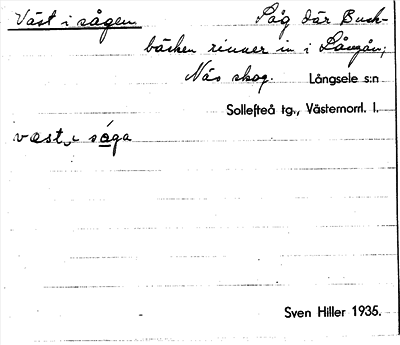 Väst i sågen Såg där Buck-
bäcken rinner in i Långån,
Näs skog. Långsele s:n
Sollefteå tg., Västernorrl. l.
væst i såga
Sven Hiller 1935.